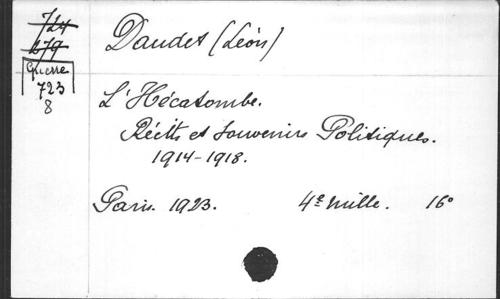 724
279
Guerre
723
8
Daudet (Léon)
L'Hécatombe.
Récits et Souvenirs Politiques.
1914-1918.
Paris. 1923. 4e mille. 16°